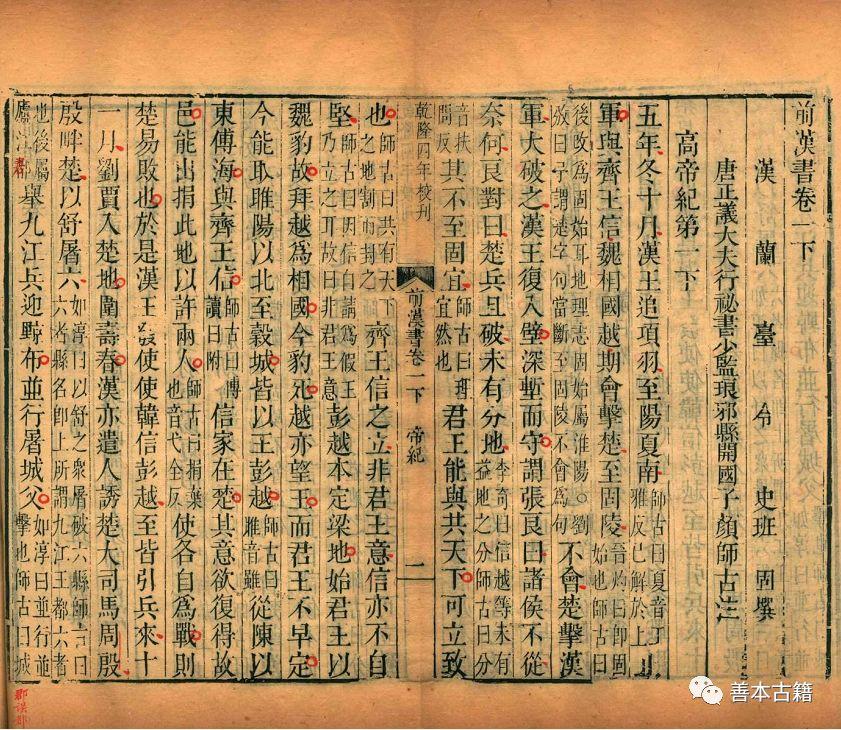 前漢書卷一下
漢蘭臺令史班固撰
唐正議大夫行祕書少監琅邪縣開國子顏師古注
高帝紀第一下
五年冬十月漢王追項羽至陽夏南師古曰夏音工雅反已解於上
軍與齊王信魏相國越期會擊楚至固陵晉灼曰即固始也師古曰
後改爲固始耳地理志固始屬淮陽。劉攽曰予謂遠字句當斷至固陵不會爲句不會楚擊漢
軍大破之漢王復入壁深塹而守謂張良曰諸侯不從
奈何良對曰楚兵且破未有分地李奇曰信越等未有益地之分師古曰分
音扶問反其不至固宜師古曰理宜然也君王能與共天下可立致
乾隆四年校刊
前漢書卷一下 帝紀 一
也師古曰共有天下之地割而封之齊王信之立非君王意信亦不自
堅師古曰因信自請爲假王乃立之耳故曰非君王意彭越本定梁地始君王以
魏豹故拜越爲相國今豹死越亦望王而君王不早定
今能取睢陽以北至穀城皆以王彭越師古曰睢音雖從陳以
東傅海與齊王信師古曰傅讀曰附信家在楚其意欲復得故
邑能出捐此地以許兩人師古曰捐棄也音弋全反使各自爲戰則
楚易敗也於是漢王發使使韓信彭越至皆引兵來十
一月劉賈入楚地圍壽春漢亦遣人誘楚大司馬周殷
殷畔楚以舒屠六如淳曰以舒之衆屠破六縣師古曰六者縣名即上所謂九江王都六者
也後屬廬江郡舉九江兵迎黥布並行屠城父如淳曰並行並擊也師古曰城
善本古籍